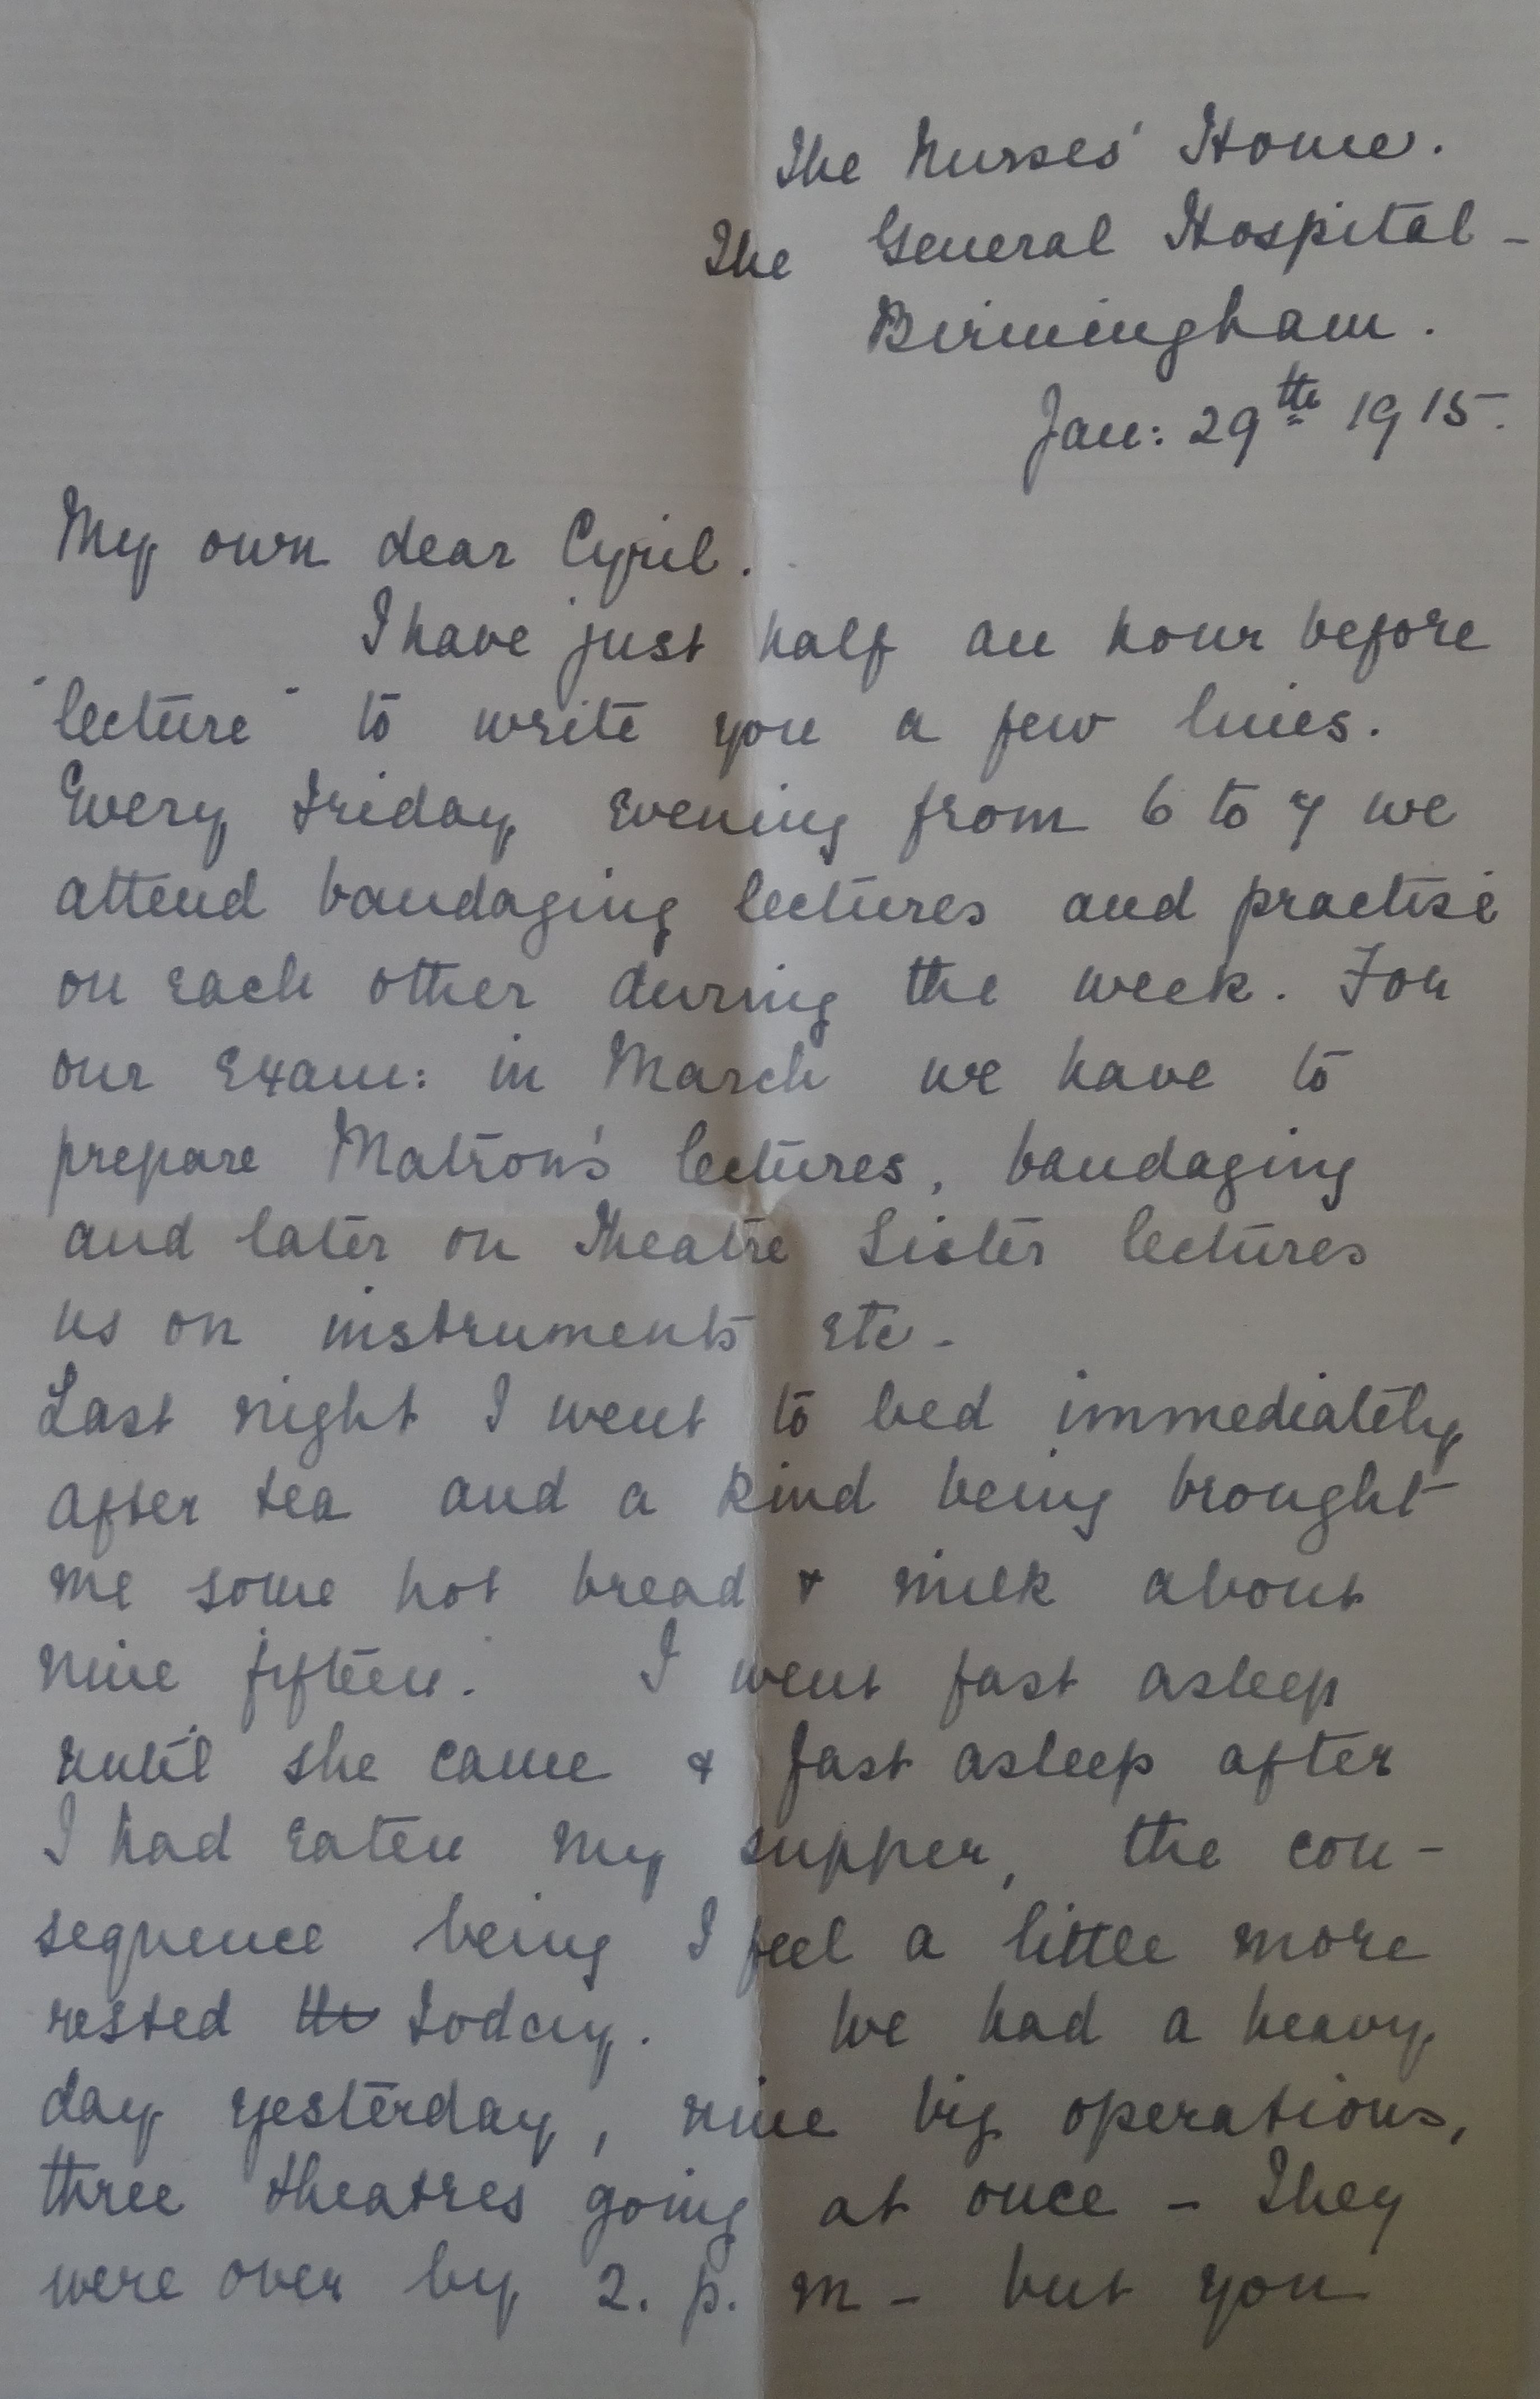 The Nurses' Home.
The General Hospital -
Birmingham.
Jan: 29th 1915.
My own dear Cyril.
I have just half an hour before
"lecture" to write you a few lines.
Every Friday evening from 6 to 7 we
attend bandaging lectures and practise
on each other during the week. For
our exam: in March we have to
prepare Matron's lectures, bandaging
and later on Theatre Sister lectures
us on instruments etc -
Last night I went to bed immediately
after tea and a kind being brought
me some hot bread & milk about
nine fifteen. I went fast asleep
until she came & fast asleep after
I had eaten my supper, the con-
sequence being I feel a little more
rested th today. We had a heavy
day yesterday, nine big operations,
three theatres going at once - They
were over by 2. p. m - but you